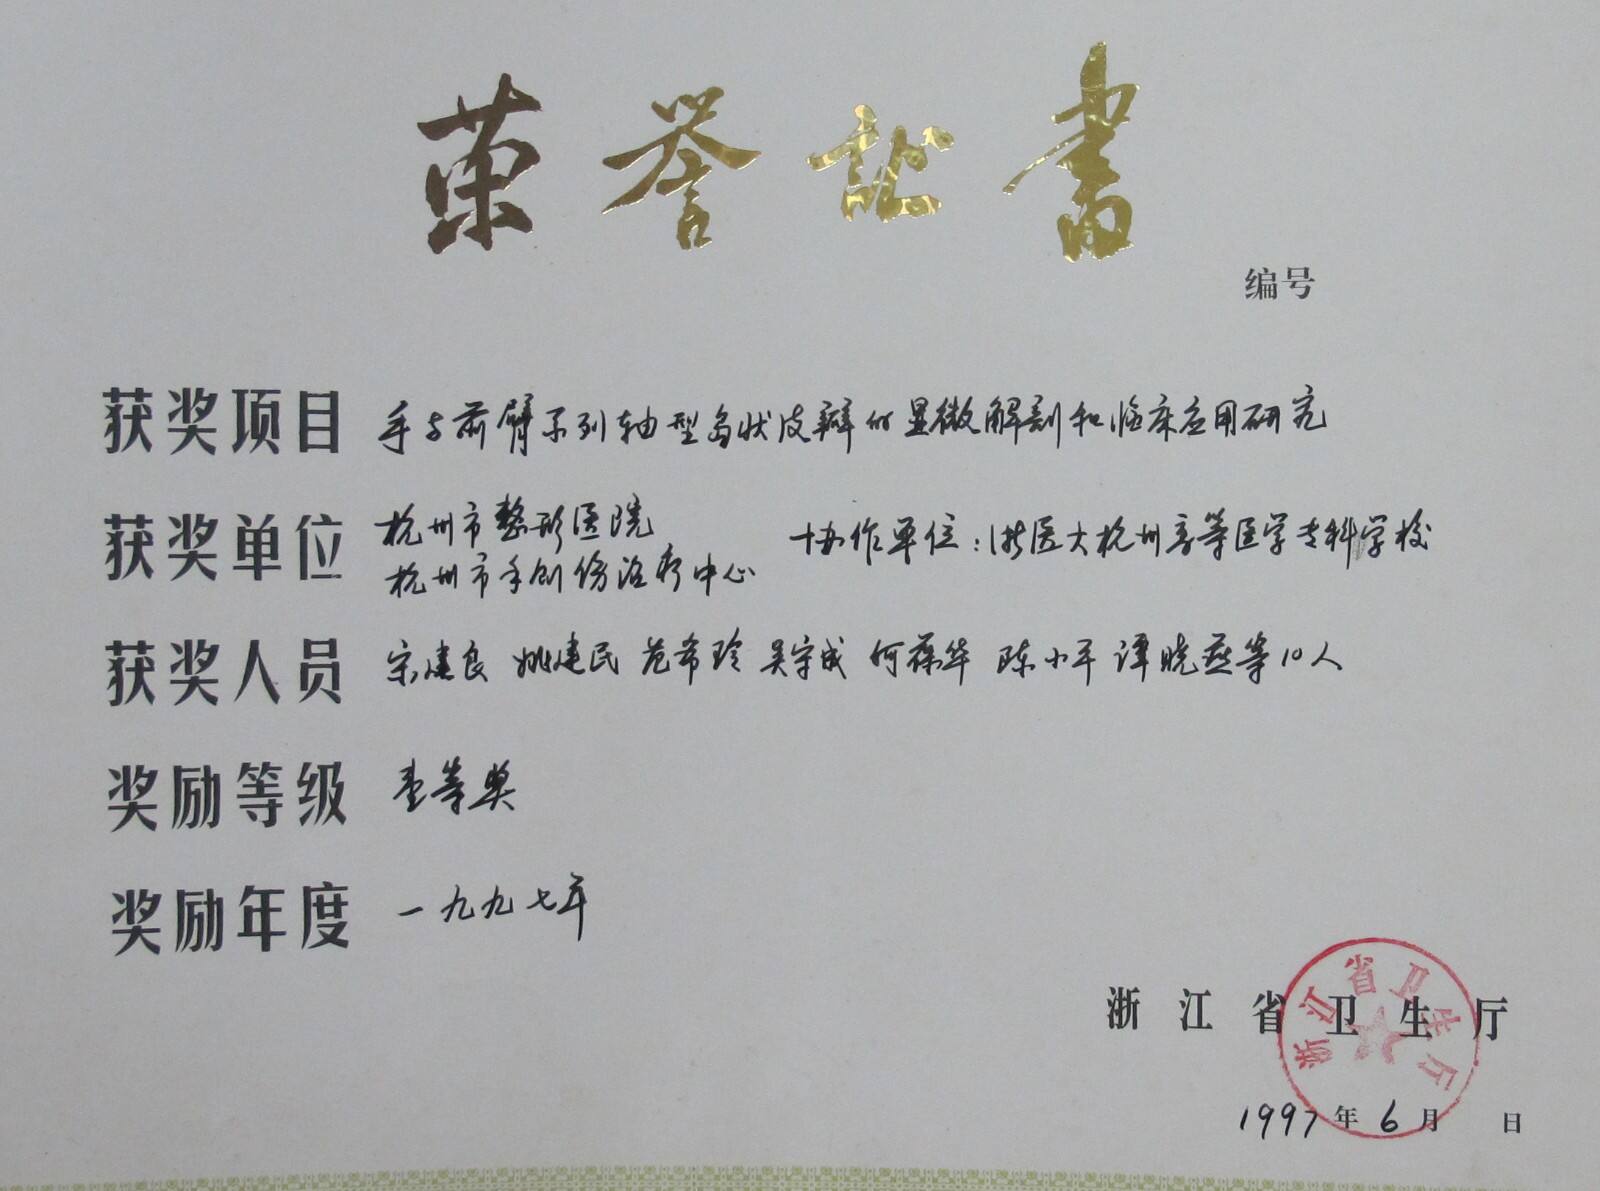 荣誉证书
编号
获奖项目 手与前臂系列轴型岛状皮瓣的显微解剖和临床应用研究
获奖单位 杭州市整形医院 协作单位:浙医大杭州高等医学专科学校
杭州市手创伤治疗中心
获奖人员 宗建良 姚建民 范希玲 吴守成 何葆华 陈小平 谭晓燕等10人
奖励等级 壹等奖
奖励年度 一九九七年
浙江省卫生厅
浙江省卫生厅
1997年6月 日